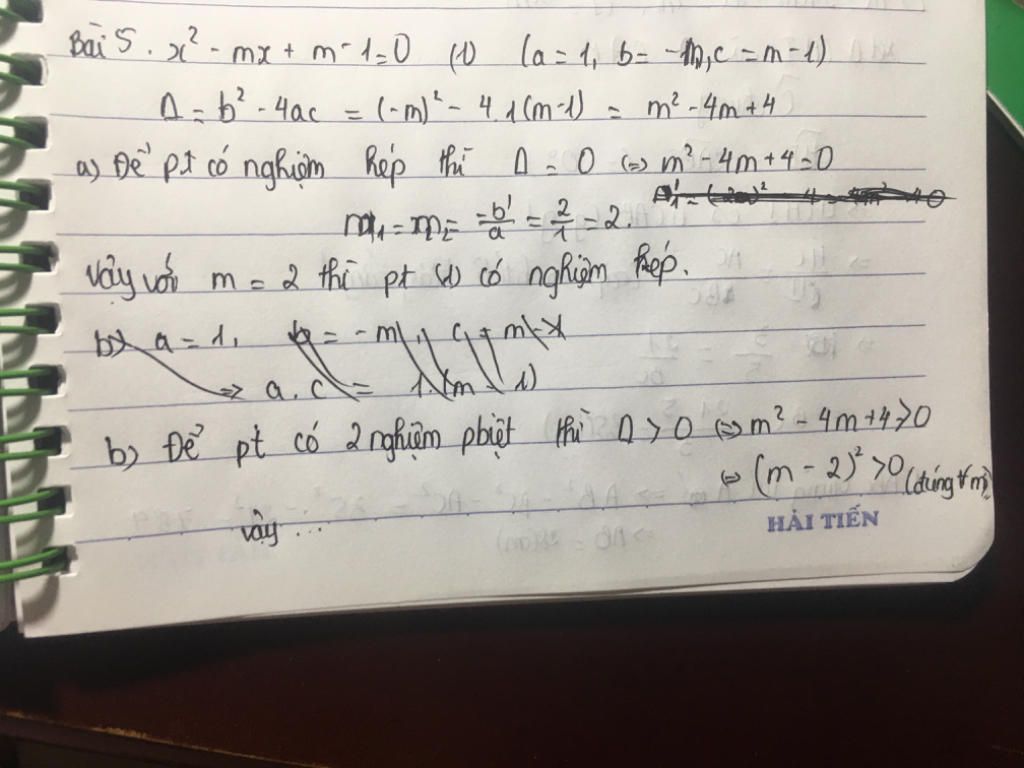 Bài 5. x² - mx + m - 1 = 0 (1) (a = 1, b = -m, c = m - 1)
Δ = b² - 4ac = (-m)² - 4.1(m-1) = m² - 4m + 4
a) Để pt có nghiệm kép thì Δ = 0 ⇔ m² - 4m + 4 = 0
m₁ = m₂ = -b'/a = 2/1 = 2.
Vậy với m = 2 thì pt (1) có nghiệm kép.
b) a = 1, b = -m, c = m - 1
⇒ a.c = 1.(m - 1)
b) Để pt có 2 nghiệm pbiệt thì Δ > 0 ⇔ m² - 4m + 4 > 0
⇔ (m - 2)² > 0 (đúng ∀m)
HẢI TIẾN
vậy ...